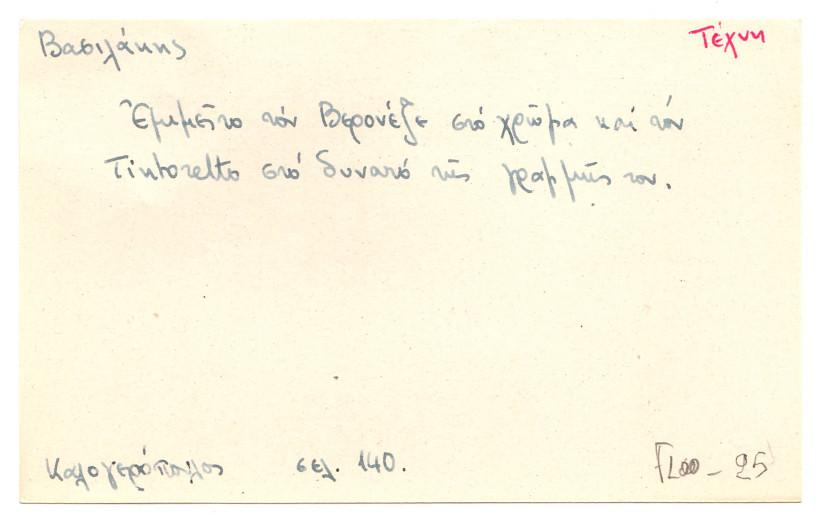 Βασιλάκης
Τέχνη
Ἐμιμεῖτο τόν Βερονέζε στό χρῶμα καί τόν
Tintoretto στό δυνατό τῆς γραμμῆς του.
Καλογερόπουλος σελ. 140.
25